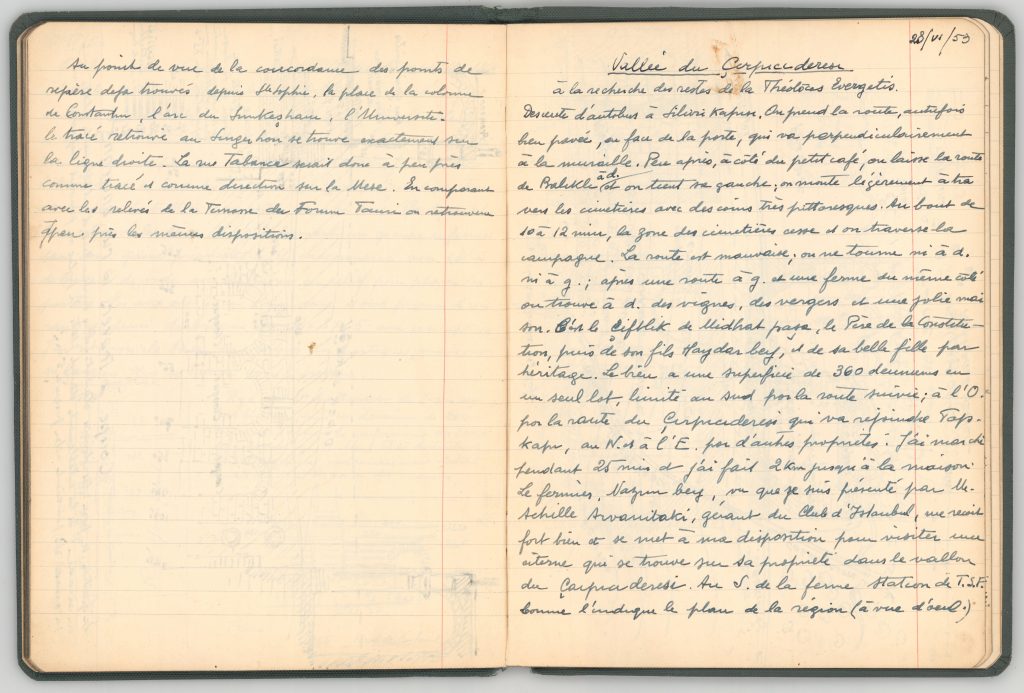 Au point de vue de la concordance des points de
repère deja trouvés depuis Ste Sophie, la place de la colonne
de Constantin, l'arc du Simkeshane, l'Université
le tracé retrouvé au se trouve exactement sur
la ligne droite. La rue Tabanca serait donc à peu près
comme tracé et comme direction sur la Mese. En comparant
avec les relevés de la Terrasse du Forum Tauri on retrouvera
à peu près les mêmes dispositions.
28/VI/53
Vallée du Çirpıcıderesi
à la recherche des restes de la Théotocos Evergetis.
Descente d'autobus à Silivri Kapusu. On prend la route, autrefois
bien pavée, en face de la porte, qui va perpendiculairement
à la muraille. Peu après, à côté du petit café, on laisse la route
de Balikli à d. et on tient sa gauche; on monte légèrement à tra
vers les cimetières avec des coins très pittoresques. Au bout de
10 à 12 min, la zone des cimetières cesse et on traverse la
campagne. La route est mauvaise; on ne tourne ni à d.
ni à g.; après une route à g. et une ferme du même côté
on trouve à d. des vignes, des vergers et une jolie mai
son. C'est le Çiftlik de Midhat paşa, le Père de la Constitu-
tion, puis de son fils Haydar bey, et de sa belle fille par
héritage. Le bien a une superficie de 360 deunums en
un seul lot, limité au sud par la route suivie; à l'O.
par la route du Çirpıcıderesi qui va rejoindre Top-
kapu, au N. et à l'E. par d'autres propriétés. J'ai marché
pendant 25 min et j'ai fait 2 km jusqu'à la maison.
Le fermier, Nazım bey, vu que je suis présenté par M.
Achille Arvanitaki, gérant du Club d'Istanbul, me reçoit
fort bien et se met à ma disposition pour visiter une
citerne qui se trouve sur sa propriété dans le vallon
du Çirpıcı deresi. Au S. de la ferme station de T.S.F.
Comme l'indique le plan de la région (à vue d'oeil.)